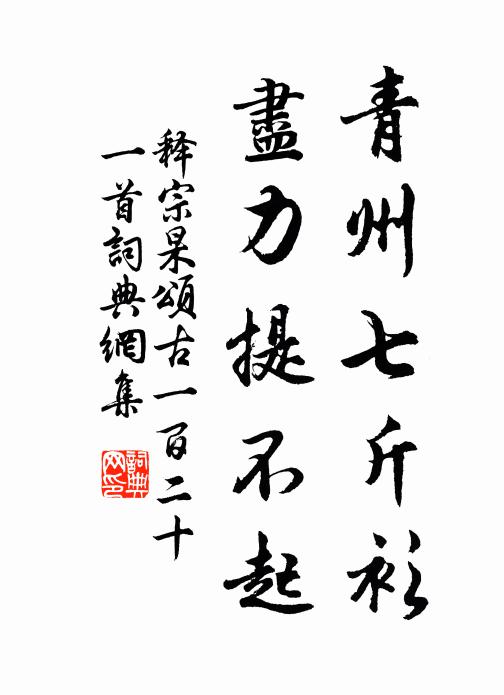 青州七斤衫
盡力提不起
释宗杲頌古一百二十
一首詞典網集
詞典网印